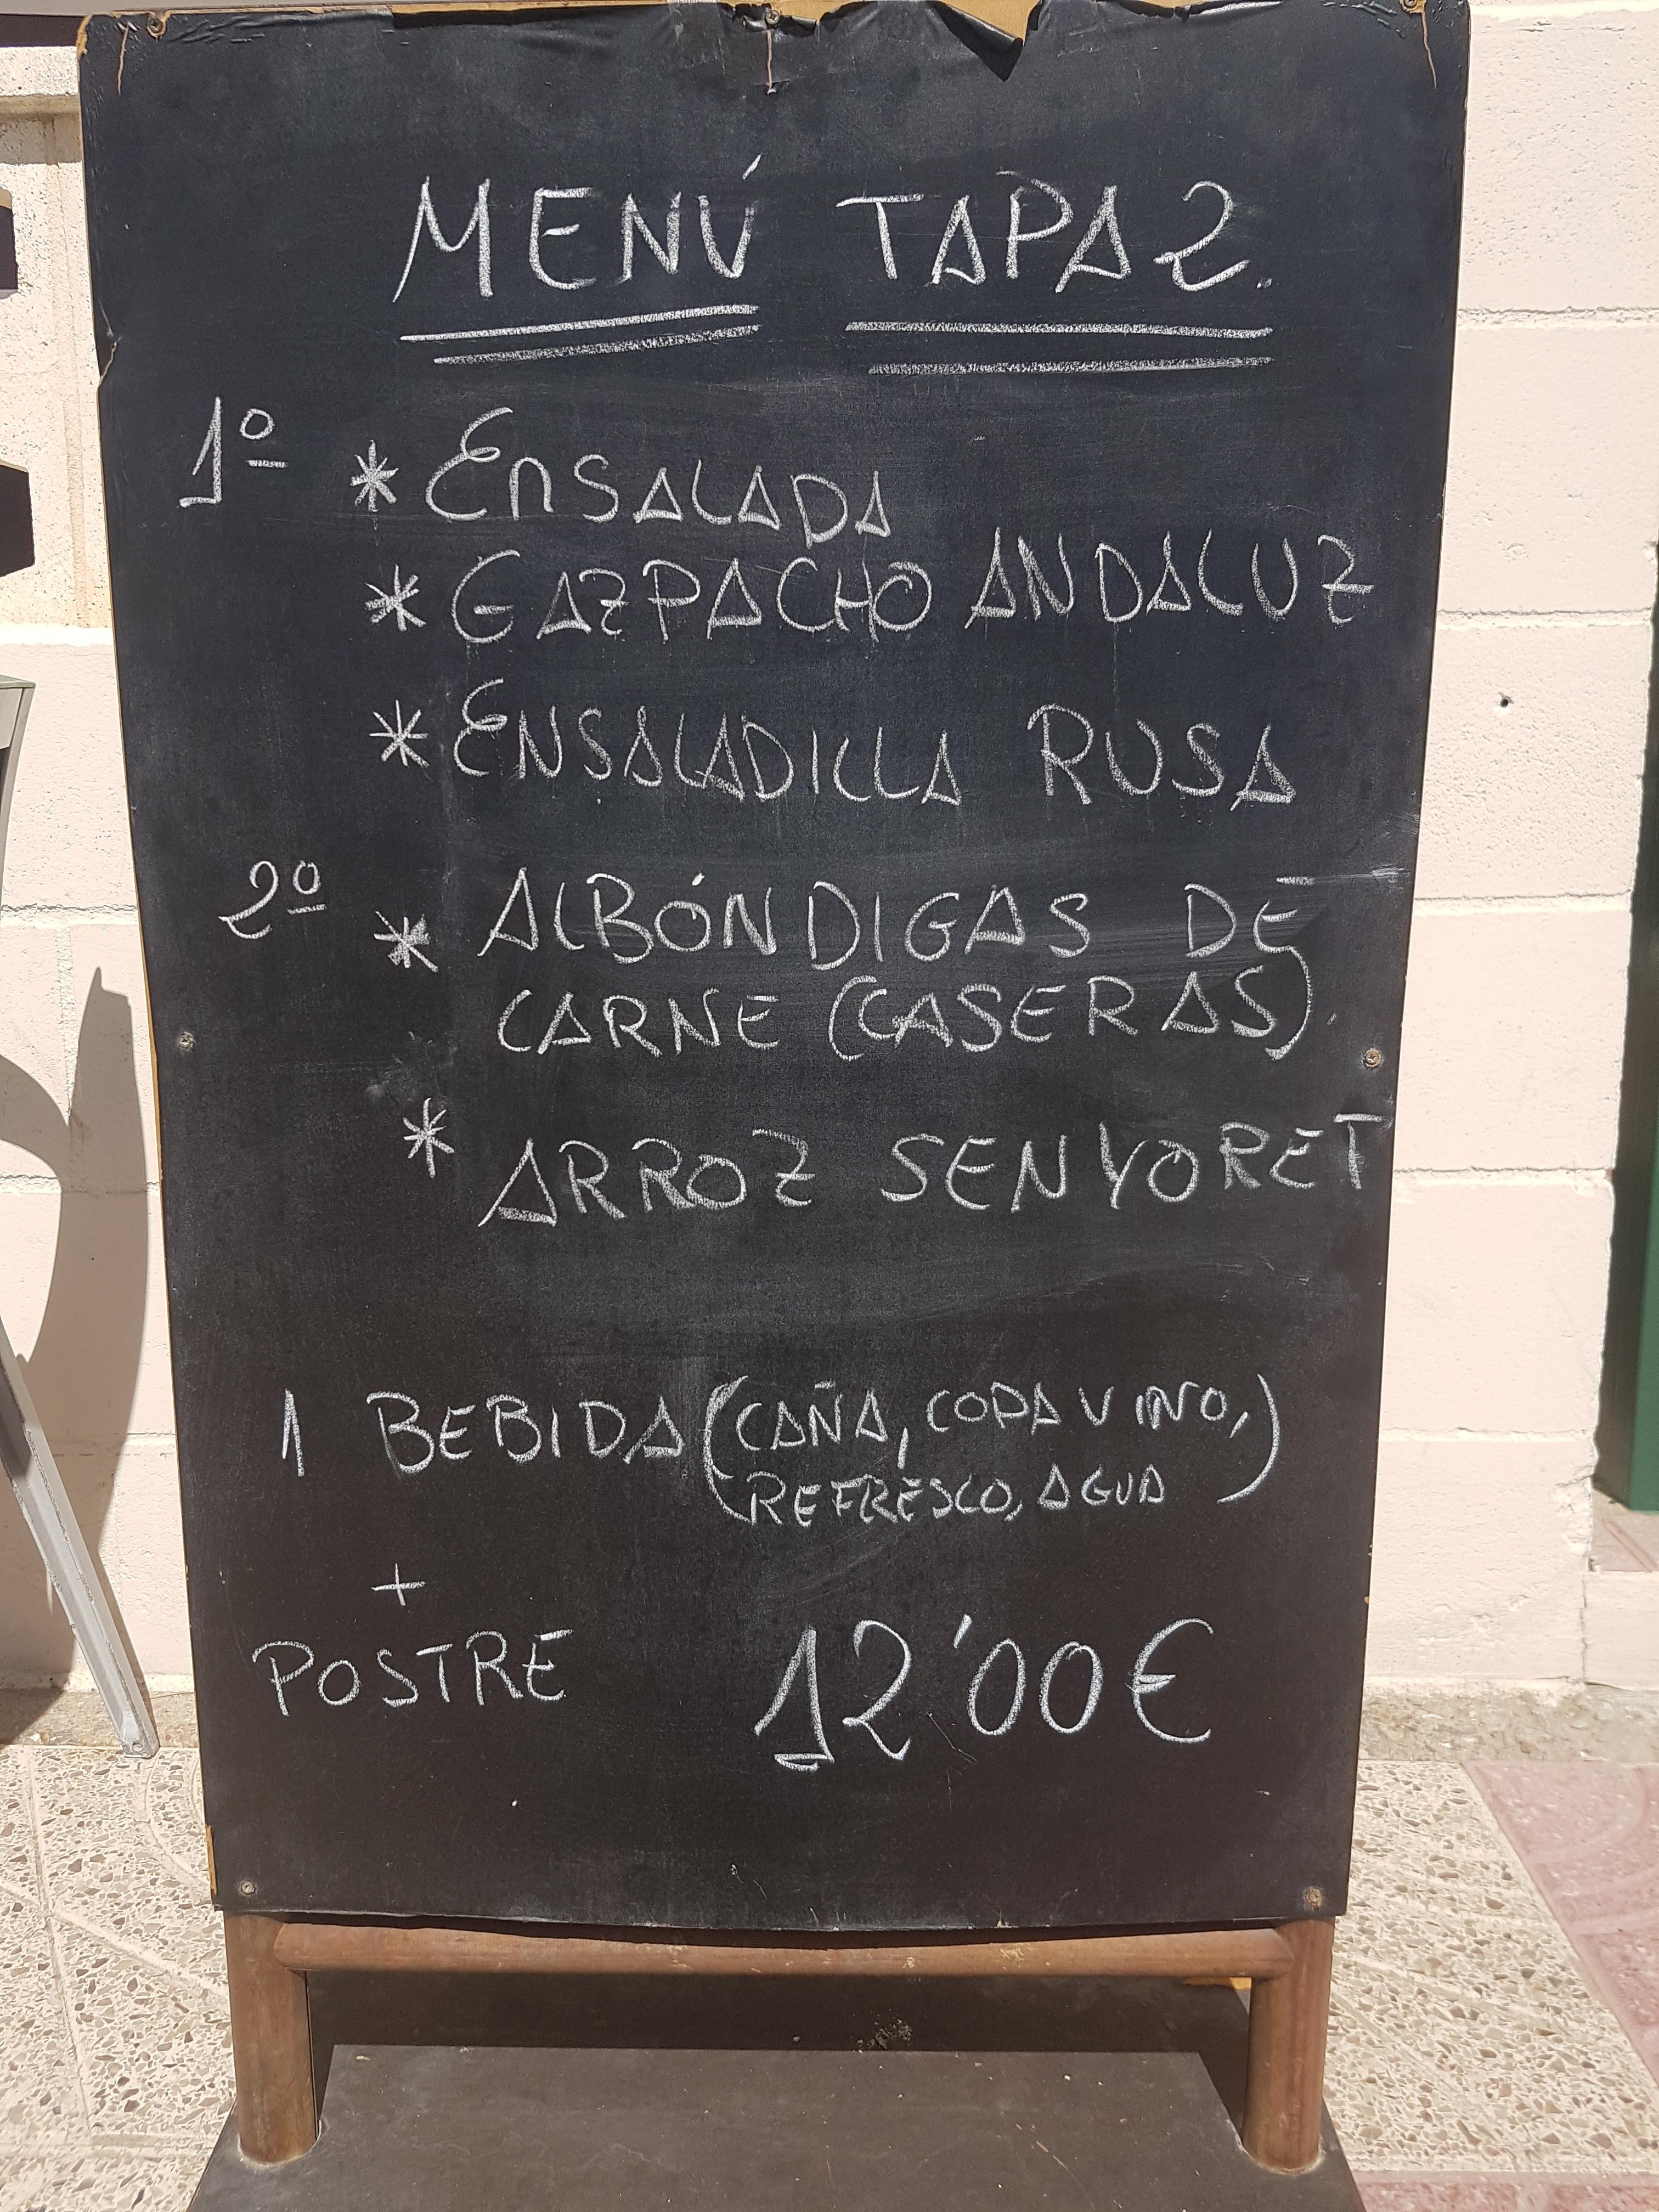 MENÚ TAPA 2.
1º * ENSALADA
* GAZPACHO ANDALUZ
* ENSALADILLA RUSA
2º * ALBÓNDIGAS DE
CARNE (CASERAS).
* ARROZ SENYORET
1 BEBIDA (CAÑA, COPA VINO,
REFRESCO, AGUA)
+
POSTRE 12'00€